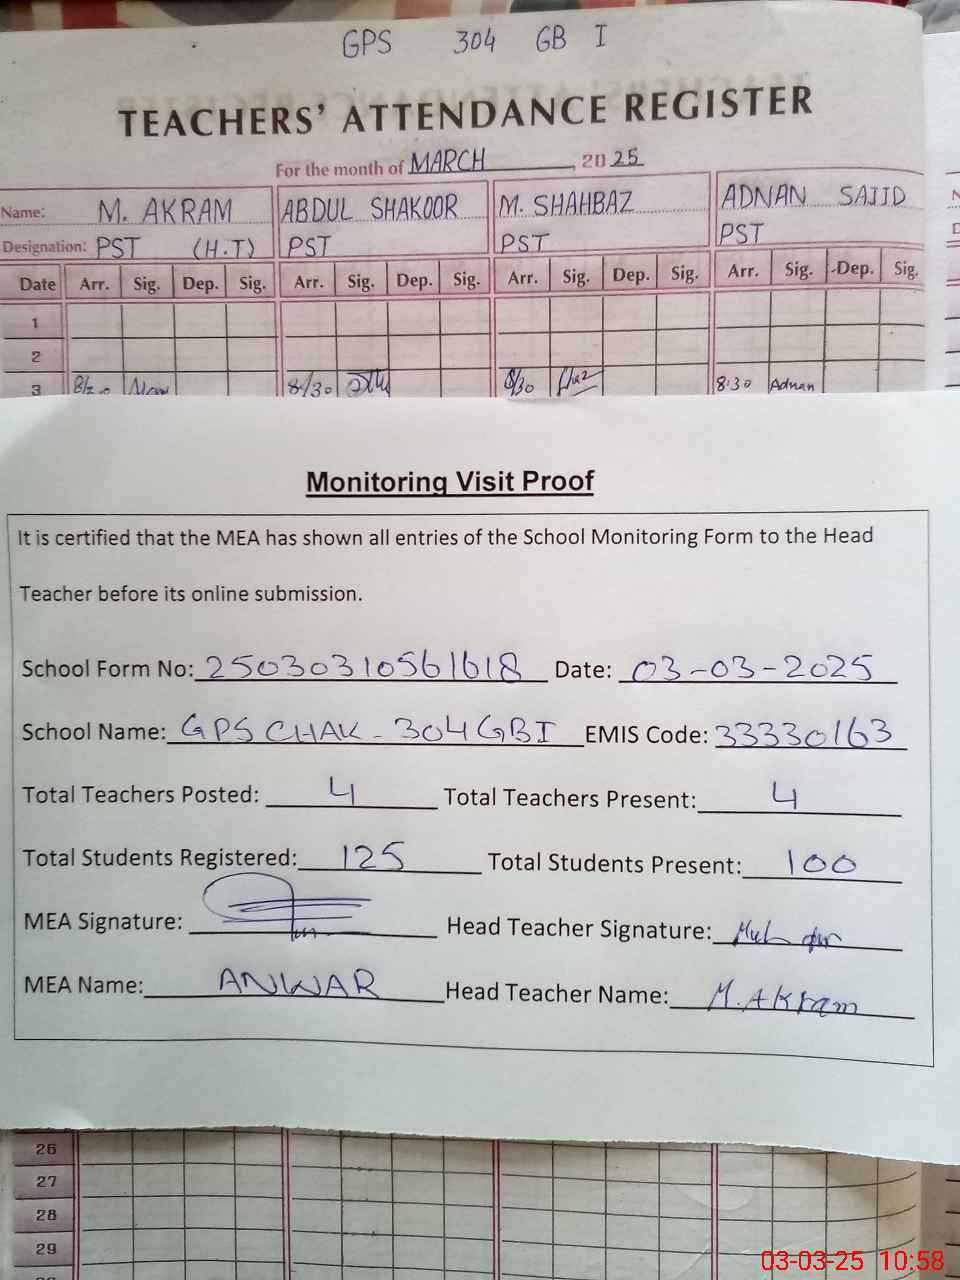 GPS 304 GB I
TEACHERS' ATTENDANCE REGISTER
For the month of MARCH, 2025
Name: M. AKRAM ABDUL SHAKOOR M. SHAHBAZ ADNAN SAJID
Designation: PST (H.T) PST PST PST
Date Arr. Sig. Dep. Sig. Arr. Sig. Dep. Sig. Arr. Sig. Dep. Sig. Arr. Sig. Dep. Sig.
1
2
3 8/30 8/30 8:30 Adnan
Monitoring Visit Proof
It is certified that the MEA has shown all entries of the School Monitoring Form to the Head
Teacher before its online submission.
School Form No: 25030310561618 Date: 03-03-2025
School Name: GPS CHAK - 304 GBI EMIS Code: 33330163
Total Teachers Posted: 4 Total Teachers Present: 4
Total Students Registered: 125 Total Students Present: 100
MEA Signature: Head Teacher Signature:
MEA Name: ANWAR Head Teacher Name: M. Akram
26
27
28
29
03-03-25 10:58